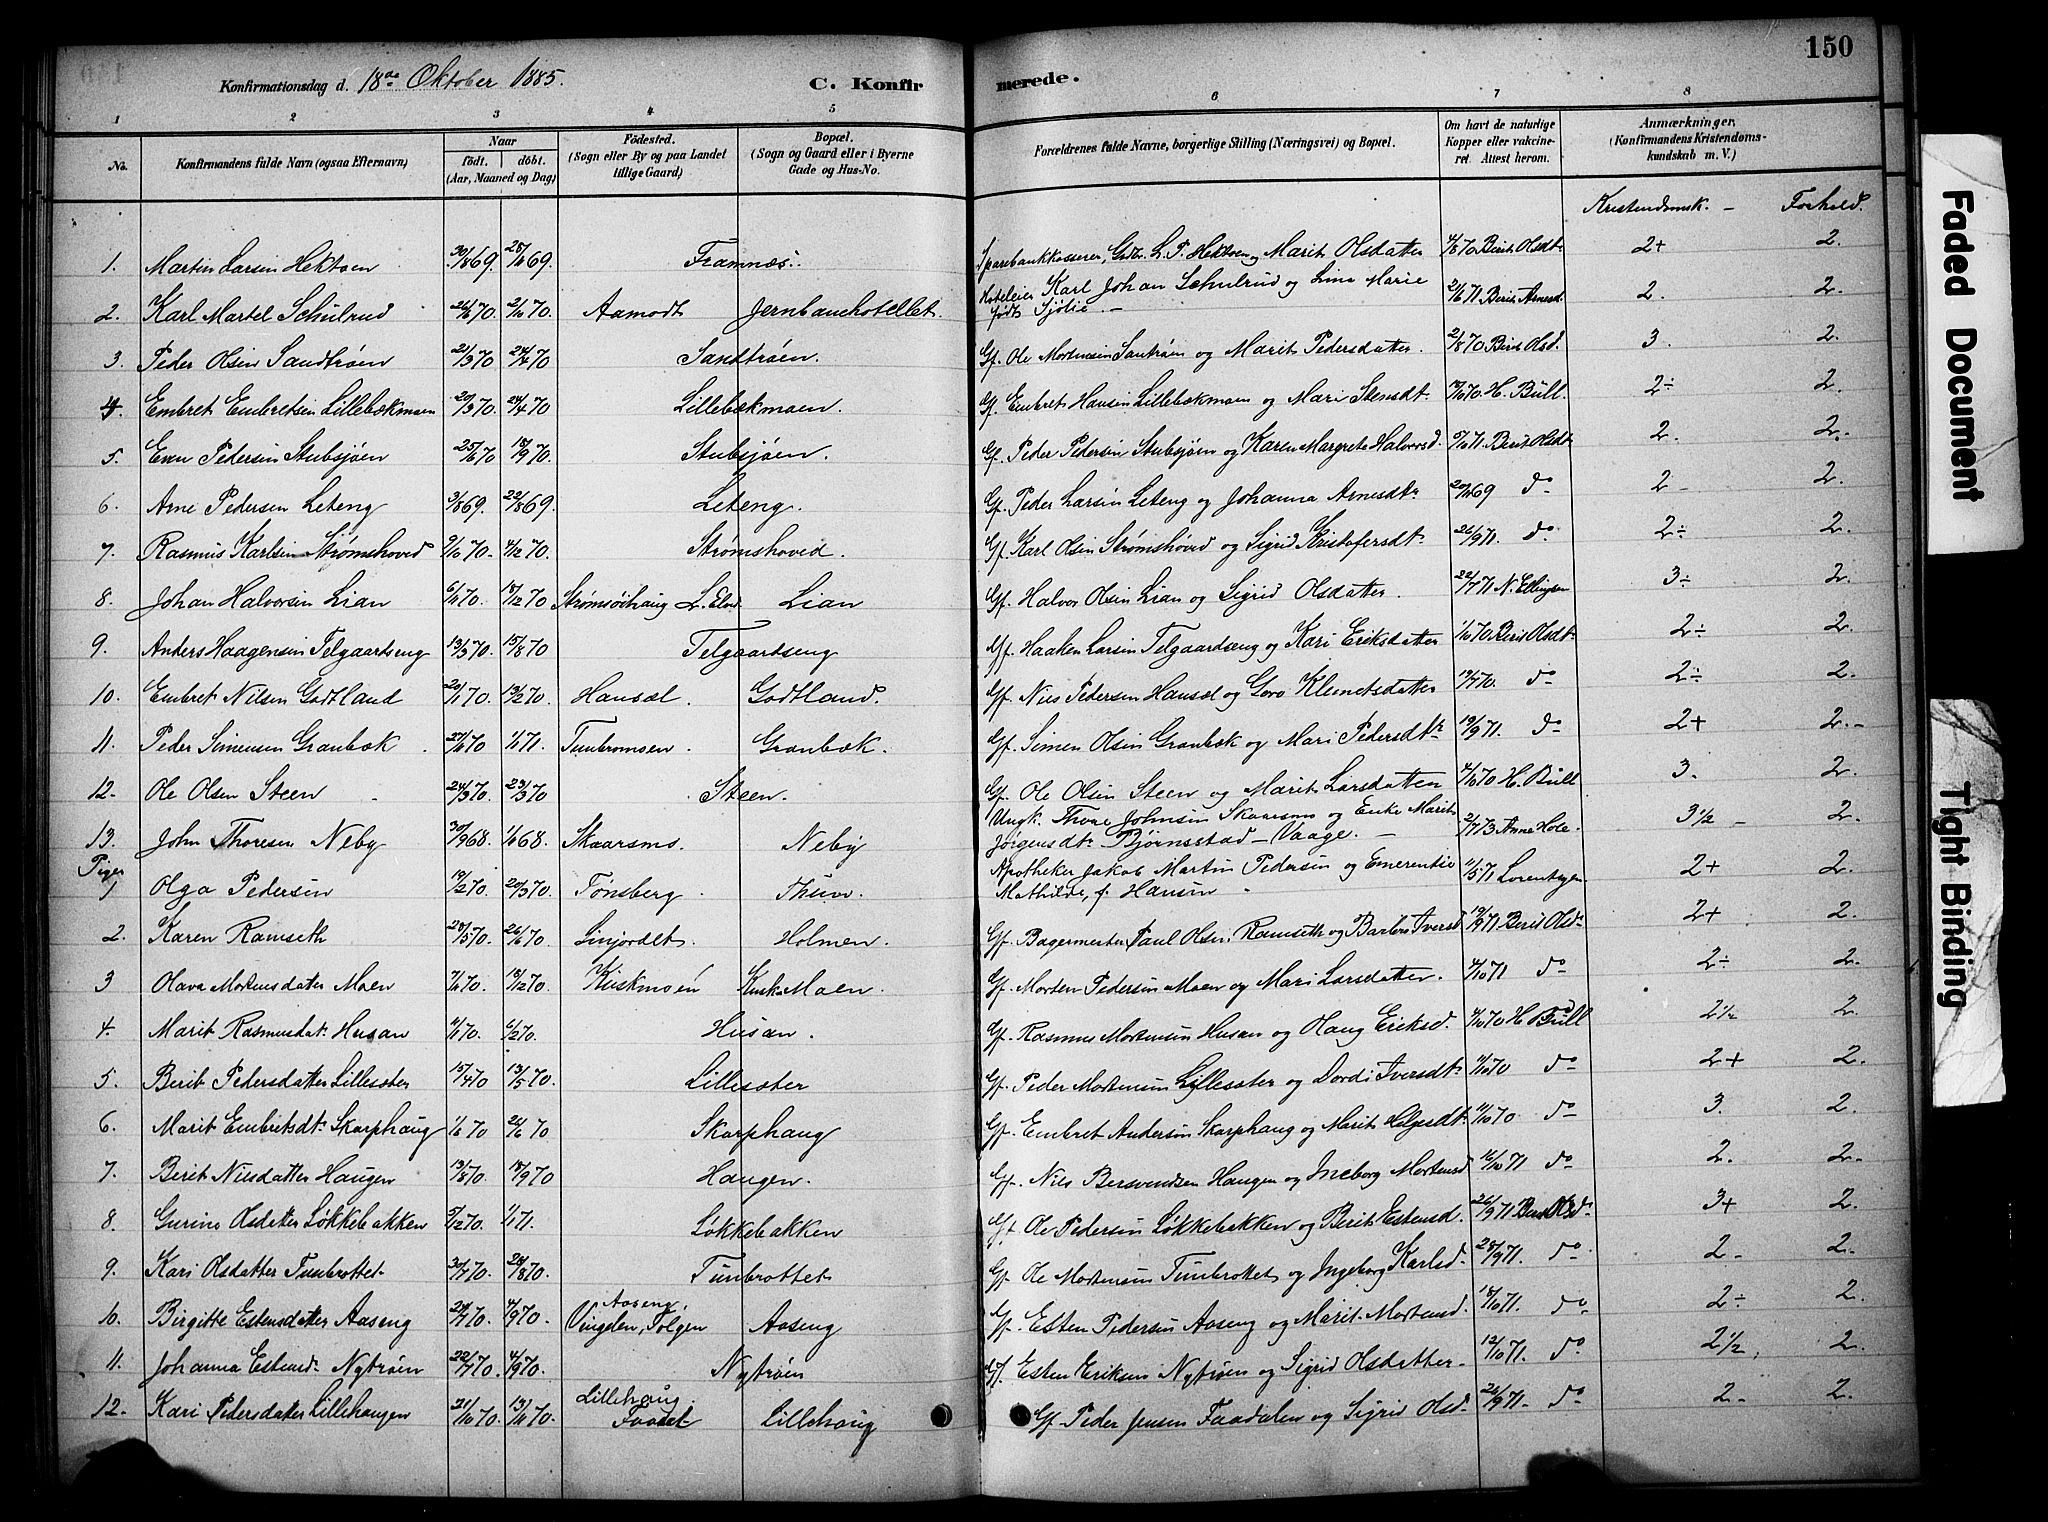 150
Konfirmationsdag d. 18de Oktober 1885.
C. Konfirmerede.
1 2 3 4 5 6 7 8
No. Konfirmandens fulde Navn (ogsaa Efternavn) Naar födt. döbt. (Aar, Maaned og Dag) Födested. (Sogn eller By og paa Landet tillige Gaard) Bopæl. (Sogn og Gaard eller i Byerne Gade og Hus-No. Forældrenes fulde Navne, borgerlige Stilling (Næringsvei) og Bopæl. Om havt de naturlige Kopper eller vakcineret. Attest herom. Anmærkninger. (Konfirmandens Kristendomskundskab m. V.)
Kristendomsk. – Forhold.
1. Martin Larsen Hektoen 30/8 69. 28/11 69. Framnæs. Sparebankkasserer, Gdbr. L. P. Hektoen og Marit Olsdatter 4/8 70 Berit Olsdt. 2+ 2.
2. Karl Martel Schulrud 26/6 70 2/10 70. Aamodt Jernbanehotellet. Hoteleier Karl Johan Schulrud og Lina Marie født Sjølie. – 2/6 71 Berit Arnesd. 2. 2.
3. Peder Olsen Sandtrøen 21/3 70 24/4 70 Sandtrøen. Gf. Ole Mortensen Santrøen og Marit Pedersdatter. 2/8 70 Berit Olsd. 3. 2.
4. Embret Embretsen Lillebækmoen 20/3 70. 24/4 70 Lillebækmoen. Gf. Embret Hansen Lillebækmoen og Mari Stensdt. H. Bull. 2÷ 2.
5. Even Pedersen Stubsjøen 25/6 70 18/9 70. Stubsjøen. Gf. Peder Pedersen Stubsjøen og Karen Margrete Halvorsd. Berit Olsdt. 2. 2.
6. Arne Pedersen Leteng 3/8 69. 22/8 69. Leteng. Gf. Peder Larsen Leteng og Johanna Arnesdtr do 2 - 2.
7. Rasmus Karlsen Strømshoved 9/10 70. 4/12 70. Strømshoved. Gf. Karl Olsen Strømshoved og Sigrid Kristofersdt. 26/9 71. do 2÷ 2.
8. Johan Halvorsen Lian 6/11 70. 18/12 70 Strømsöihaug L. Elvd. Lian Gf. Halvor Olsen Lian og Sigrid Olsdatter. 22/7 71 N. Ellingsen 3÷ 2.
9. Anders Haagensen Telgaardseng 13/5 70. 15/8 70 Telgaardseng Gf. Haaken Larsen Telgaardseng og Kari Eriksdatter 1/10 70 Berit Olsdt. 2÷ 2.
10. Embret Nilsen Godtland 20/1 70. 13/2 70. Hansæl. Godtland. Gf. Nils Pedersen Hansæl og Goro Klemetsdatter do 2÷ 2.
11. Peder Simensen Granbæk 1/1 71. Tunbromsen. Granbæk. Gf. Simen Olsen Granbæk og Mari Pedersdtr 19/9 71. do 2+ 2. -
12. Ole Olsen Steen 24/3 70. 23/3 70 Steen. Gf. Ole Olsen Steen og Marit Larsdatter 4/10 70 H. Bull 3. 2.
13. John Thoresen Neby 30/9 68. Skaarsmo. Neby Ungk. Thore Johnsen Skaarsmo og Enke Marit Jörgensdt. Bjørnsstad – Vaage. – 2/7 73 Anne Hole. 3 1/2 – 2.
Piger
1 Olga Pedersen 19/2 70. 20/3 70. Tønsberg. Thun. Apotheker Jakob Martin Pedersen og Emerentie Mathilde, f. Hansen 11/5 71 Lorentzen 2+ 2.
2. Karen Ramseth 28/5 70. 26/6 70. Linjordet. Holmen. Gf. Bagermester Paul Olsen Ramseth og Barbro Iversd. 19/9 71 Berit Olsd. 2+ 2.
3 Olava Mortensdatter Moen 7/11 70. 18/12 70. Kuskmoen Kuskmoen. Gf. Morten Pedersen Moen og Mari Larsdatter. 4/10 71 do 2÷ 2.
4. Marit Rasmusdat. Husan 4/1 70. 6/2 70. Husan. Gf. Rasmus Mortensen Husan og Olaug Eriksd. 4/10 70 H. Bull 2 1/2 2.
5. Berit Pedersdatter Lillesæter 15/4 70 13/5 70. Lillesæter Gf. Peder Mortensen Lillesæter og Dordi Iversdt. 11/10 70 do 2+ 2.
6. Marit Embretsdt. Skarphaug 1/6 70 26/6 70 Skarphaug Gf. Embret Andersen Skarphaug og Marit Helgesdt. 11/10 70 do 3. 2.
7. Berit Nilsdatter Haugen 13/8 70. 18/9 70 Haugen. Gf. Nils Bersvendsen Haugen og Ingeborg Mortensd. 16/10 71 do 2. 2.
8. Gurine Olsdatter Løkkebakken 9/12 70. 1/1 71. Løkkebakken Gf. Ole Pedersen Løkkebakken og Berit Estensd. 26/9 71 Berit Olsd. 3+ 2.
9. Kari Olsdatter Tunbrottet 31/7 70. 28/8 70. Tunbrottet Gf. Ole Mortensen Tunbrottet og Ingeborg Karlsd. 28/9 71. do 2 - 2.
10. Birgitte Estensdatter Aaseng 24/7 70. 4/9 70. Aaseng, Vingelen, Tolgen Aaseng Gf. Esten Pedersen Aaseng og Marit Mortensd. 18/10 71. do 2÷ 2.
11. Johanna Estensd. Nytrøen 22/7 70. 4/9 70. Nytrøen Gf. Esten Eriksen Nytrøen og Sigrid Olsdatter 12/10 71. do 2 1/2. 2.
12. Kari Pedersdatter Lillehaugen 21/10 70. 13/11 70. Lillehaug Faadal Lillehaug Gf. Peder Jensen Faadalen og Sigrid Olsd. 26/9 71. do 2 - 2.
Faded Document
Tight Binding